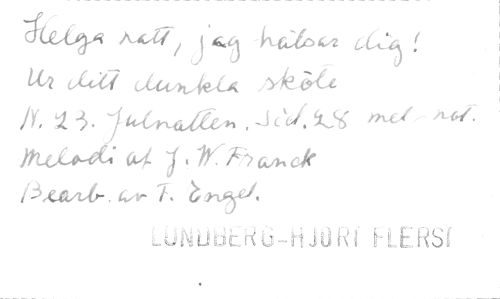 Helga natt, jag hälsar dig!
Ur ditt dunkla sköte
N. 23. Julnatten. Sid. 28 med not.
Melodi af J. W. Franck
Bearb. av F. Engel.
LUNDBERG-HJORT FLERST